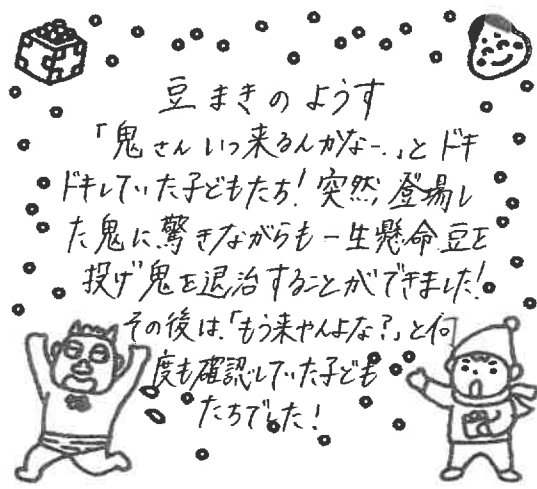 豆まきのようす
「鬼さんいつ来るんかなー。」とドキ
ドキしていた子どもたち!突然、登場し
た鬼に驚きながらも一生懸命豆を
投げ鬼を退治することができました!
その後は、「もう来やんよな?」と何
度も確認していた子ども
たちでした!